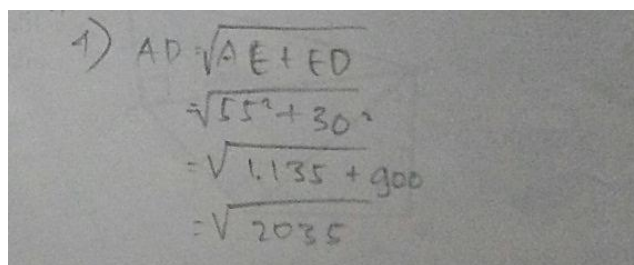 1) AD = √AE + ED
= √55² + 30²
= √1.135 + 900
= √2035